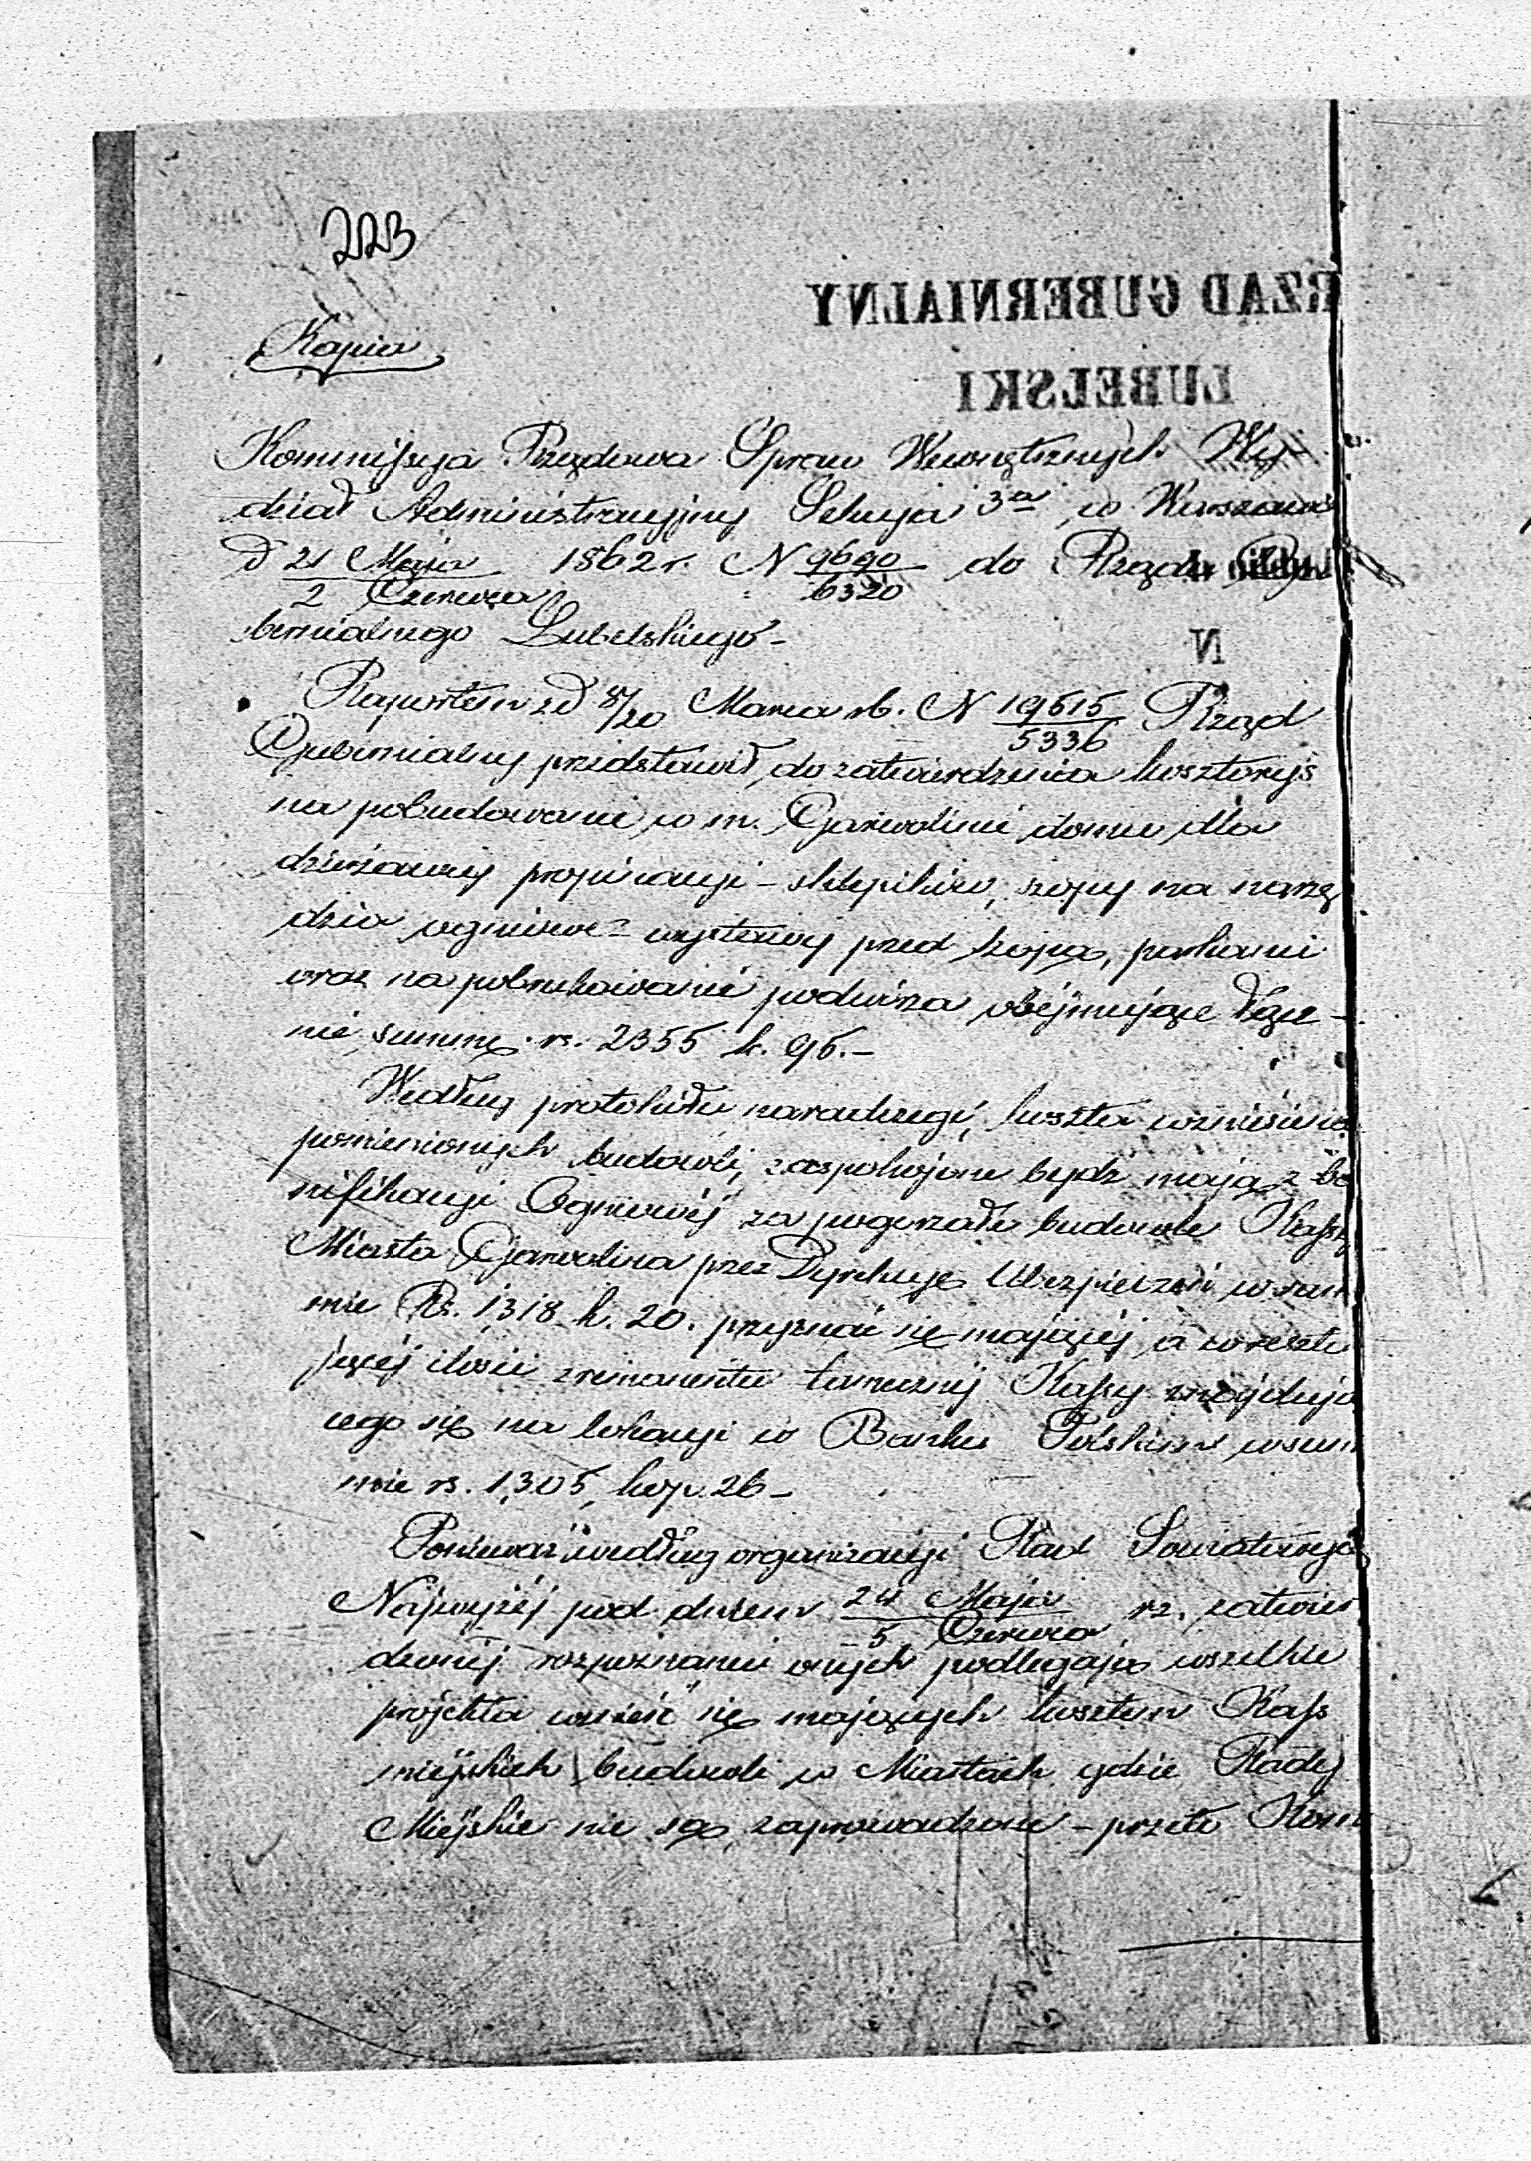 223
RZĄD GUBERNIALNY
Kopia
LUBELSKI
Kommissya Rządowa Spraw Wewnętrznych Wy-
dział Administracyjny Sekcya 3cia w Warszawie
d 21 Maja / 2 Czerwca 1862 r. N 9690/6320 do Rządu Gu
bernialnego Lubelskiego -
N
Raportem z d 8/20 Marca rb. N 19515/5336 Rząd
Gubernialny przedstawił do zatwierdzenia kosztorys
na pobudowanie w m. Garwolinie domu dla
dzierżawcy propinacyi - sklepików, szopy na narzę
dzia ogniowe - wystawy przed szopą, parkanu
oraz na pobrukowanie podwórza obejmujące łącz-
nie summę rs. 2355 k. 95. -
Według protokułu naradczego, koszta wzniesienia
pomienionych budowli, zaspokojone bydź mają z bo
nifikacyi Ogniowej za pogorzałe budowle Kassy
Miasta Garwolina przez Dyrekcyę Ubezpieczeń w sum
mie Rs. 1318 k. 20. przyznać się mającej, a w resztu
jącej ilości z remanentu tamecznej Kassy znajdują
cego się na lokacyi w Banku Polskim w sum
mie rs. 1,305, kop. 26 -
Ponieważ według organizacyi Rad Powiatowych
Najwyżej pod dniem 24 Maja / 5 Czerwca rz. zatwier
dzonej rozpoznaniu onych podlegają wszelkie
projekta wznieść się mających kosztem Kass
miejskich budowli w Miastach gdzie Rady
Miejskie nie są zaprowadzone - przeto Kom